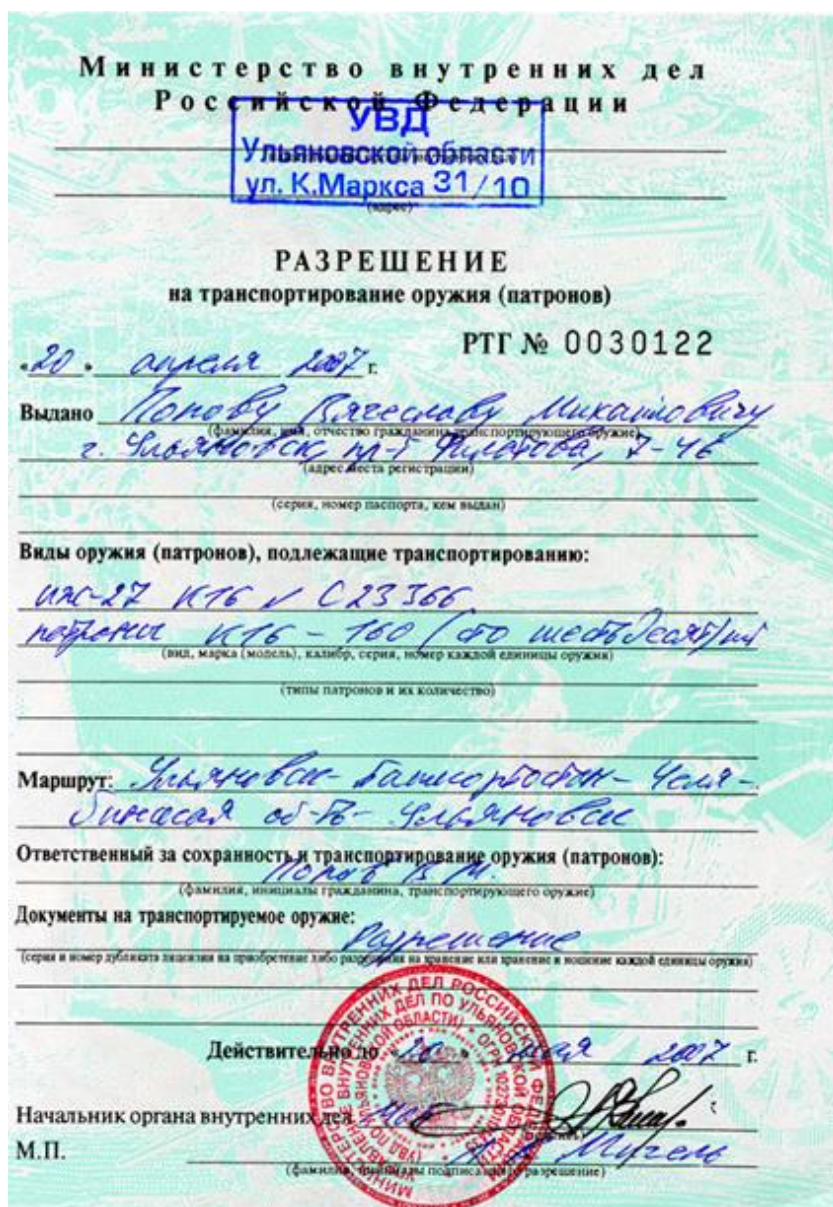 Министерство внутренних дел
Российской Федерации
УВД
Ульяновской области
ул. К.Маркса 31/10
(адрес)
РАЗРЕШЕНИЕ
на транспортирование оружия (патронов)
РТГ № 0030122
«20» апреля 2007 г.
Выдано Попову Вячеславу Михайловичу
(фамилия, имя, отчество гражданина транспортирующего оружие)
г. Ульяновск, пр-т Филатова, 7-46
(адрес места регистрации)
(серия, номер паспорта, кем выдан)
Виды оружия (патронов), подлежащие транспортированию:
иж-27 К16 № С23366
патроны К16 – 160 (сто шестьдесят) шт
(вид, марка (модель), калибр, серия, номер каждой единицы оружия)
(типы патронов и их количество)
Маршрут: Ульяновск - Башкортостан - Челя-
бинская об-ть - Ульяновск
Ответственный за сохранность и транспортирование оружия (патронов):
Попов В.М.
(фамилия, инициалы гражданина, транспортирующего оружие)
Документы на транспортируемое оружие:
Разрешение
(серия и номер дубликата лицензии на приобретение либо разрешения на хранение или хранение и ношение каждой единицы оружия)
Действительно до «20» мая 2007 г.
Начальник органа внутренних дел
М.П.
(фамилия, инициалы подписавшего разрешение)
МИНИСТЕРСТВО ВНУТРЕННИХ ДЕЛ РОССИЙСКОЙ ФЕДЕРАЦИИ
УПРАВЛЕНИЕ ВНУТРЕННИХ ДЕЛ ПО УЛЬЯНОВСКОЙ ОБЛАСТИ
(УВД ПО УЛЬЯНОВСКОЙ ОБЛАСТИ)